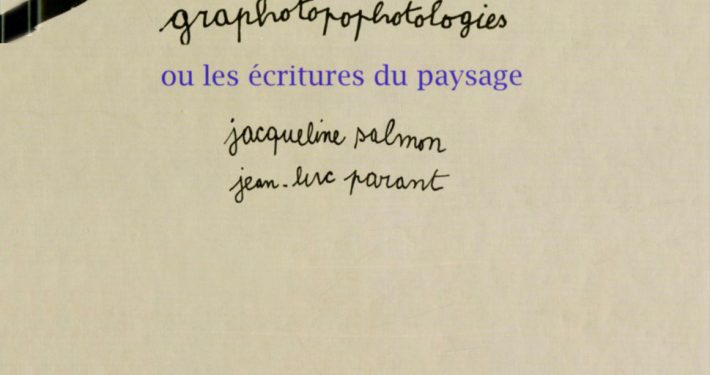 graphotopophotologies
ou les écritures du paysage
jacqueline salmon
jean-luc parant